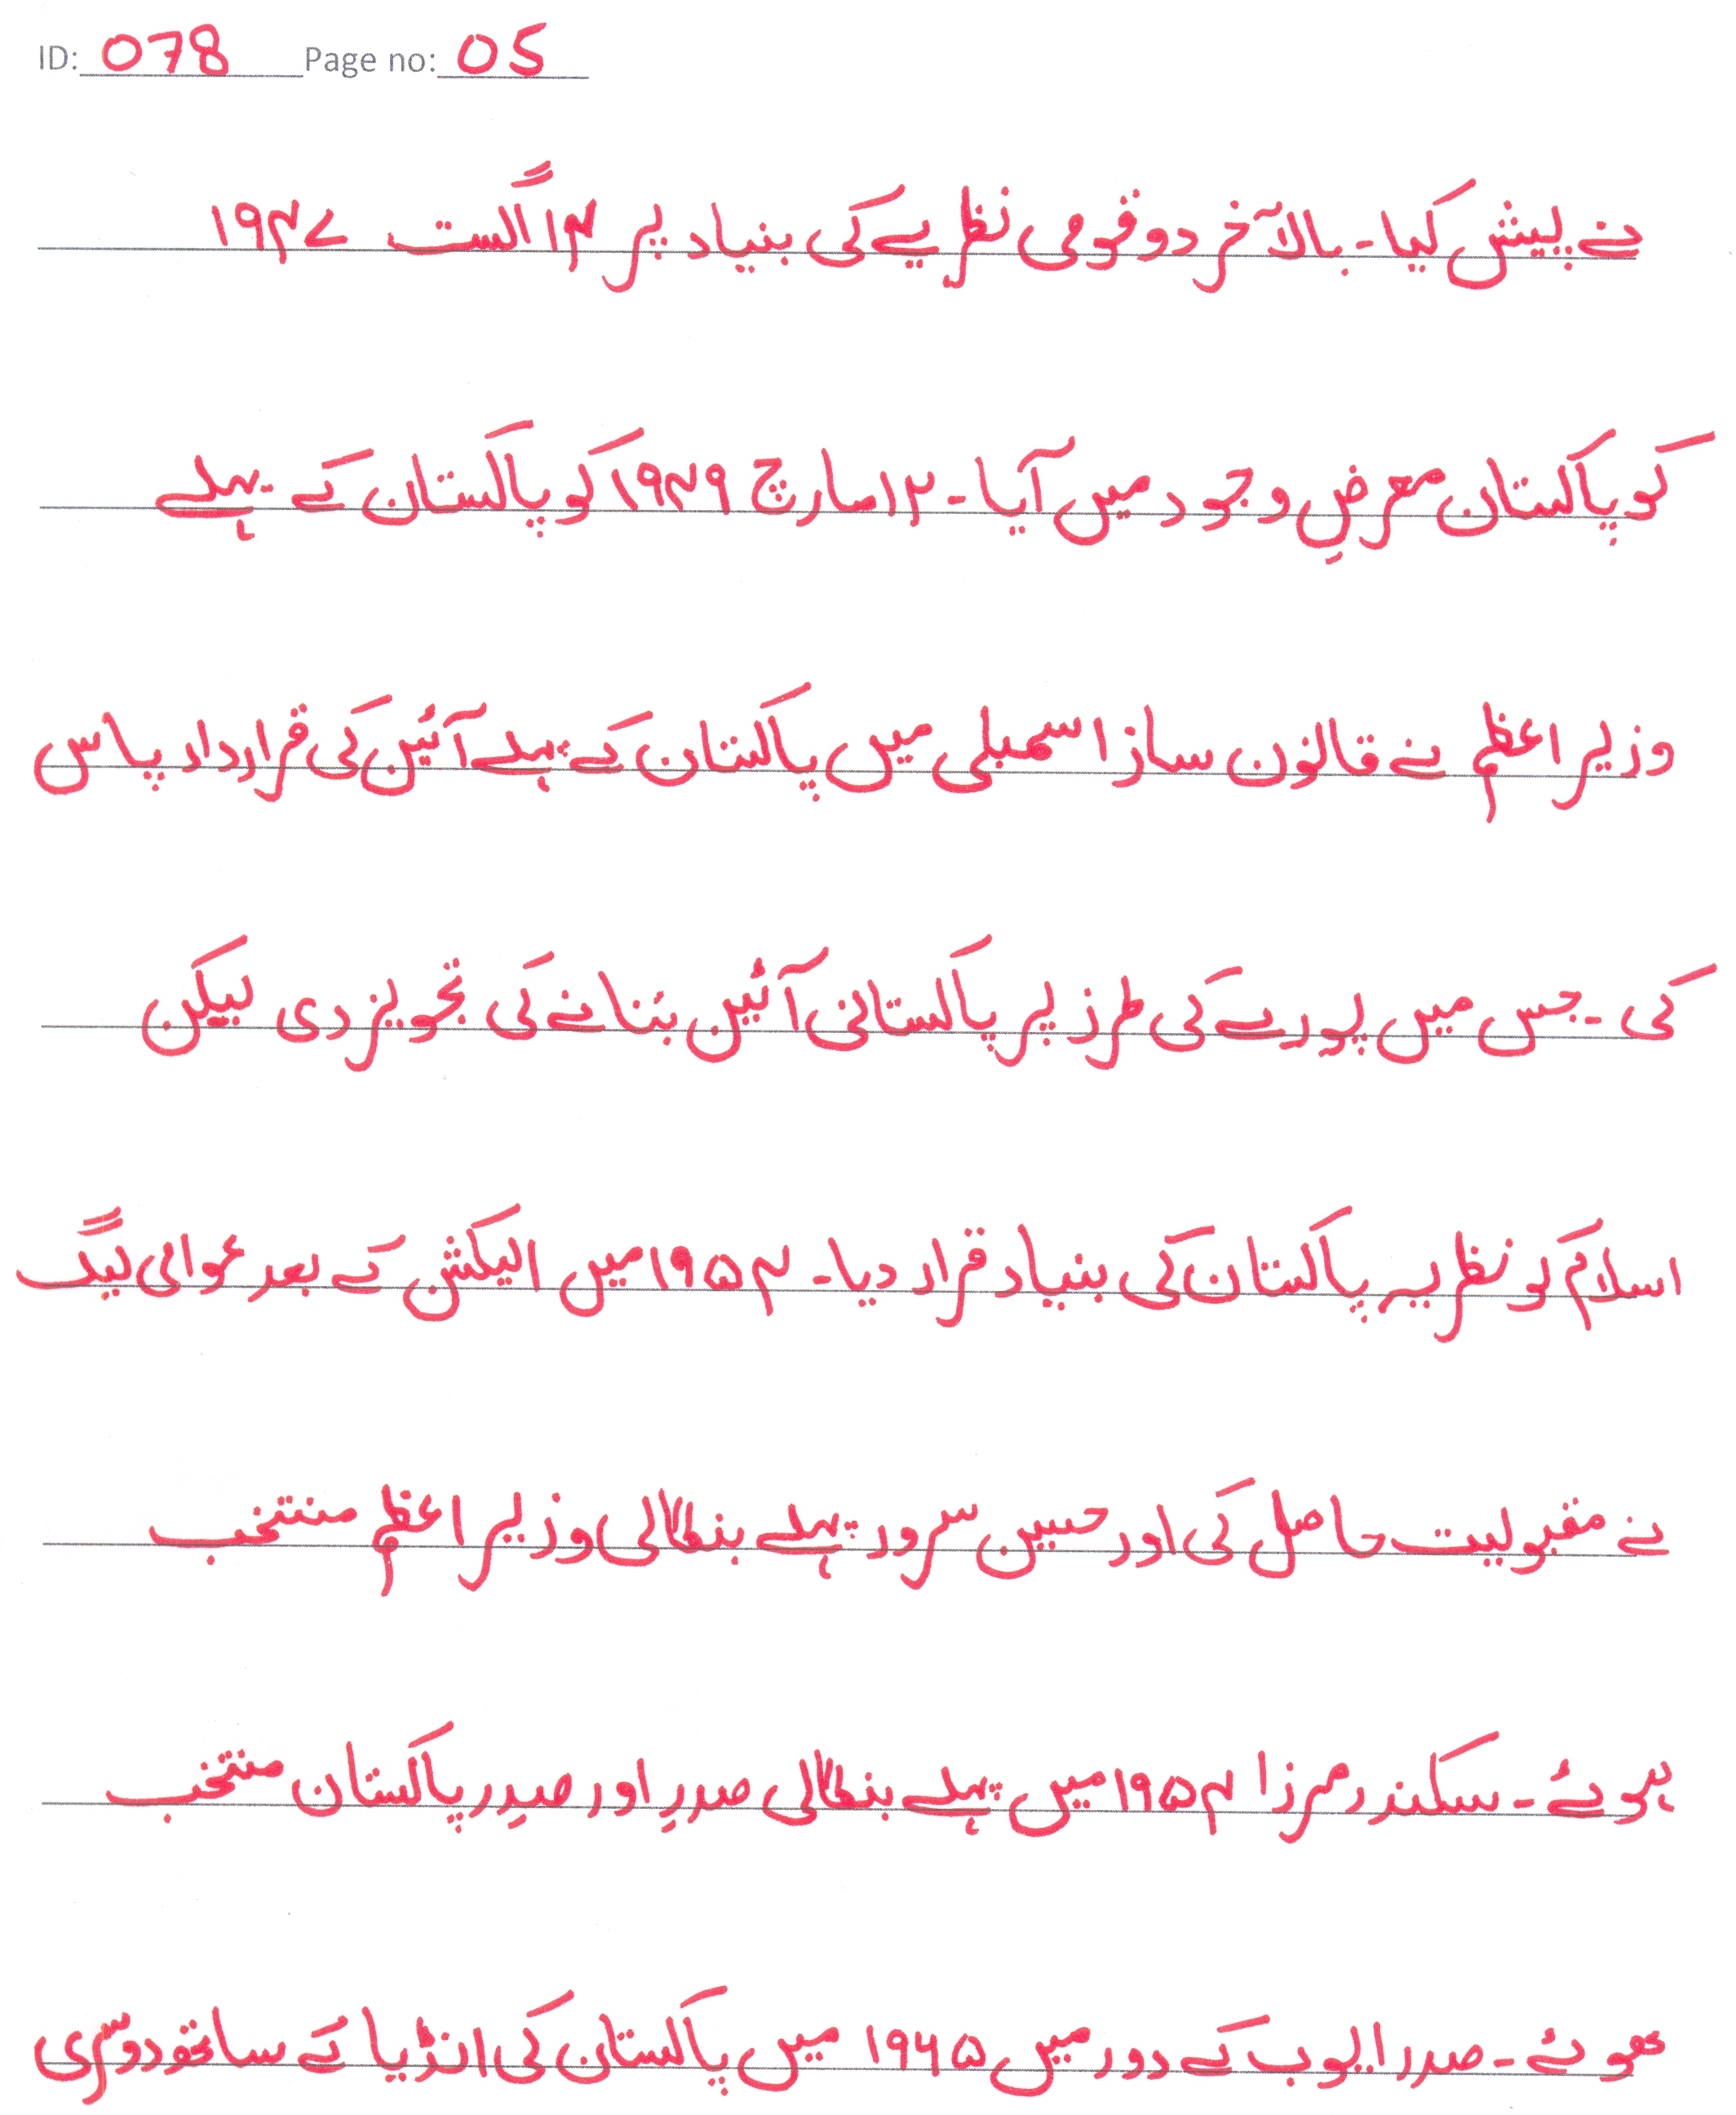 ID: 078 Page no: 05
نے پیش کیا۔ بالآخر دو قومی نظریے کی بنیاد پر ۱۴ اگست ۱۹۴۷
کو پاکستان معرضِ وجود میں آیا۔ ۱۲ مارچ ۱۹۴۹ کو پاکستان کے پہلے
وزیر اعظم نے قانون ساز اسمبلی میں پاکستان کے پہلے آئین کی قرارداد پاس
کی۔ جس میں یورپ کی طرز پر پاکستانی آئین بنانے کی تجویز دی لیکن
اسلام کو نظریہ پاکستان کی بنیاد قرار دیا۔ ۱۹۵۴ میں الیکشن کے بعد عوامی لیگ
نے مقبولیت حاصل کی اور حسین سرور پہلے بنگالی وزیر اعظم منتخب
ہوئے۔ سکندر مرزا ۱۹۵۴ میں پہلے بنگالی صدرِ اور صدِر پاکستان منتخب
ھوئے۔ صدر ایوب کے دور میں ۱۹۶۵ میں پاکستان کی انڈیا کے ساتھ دوسری